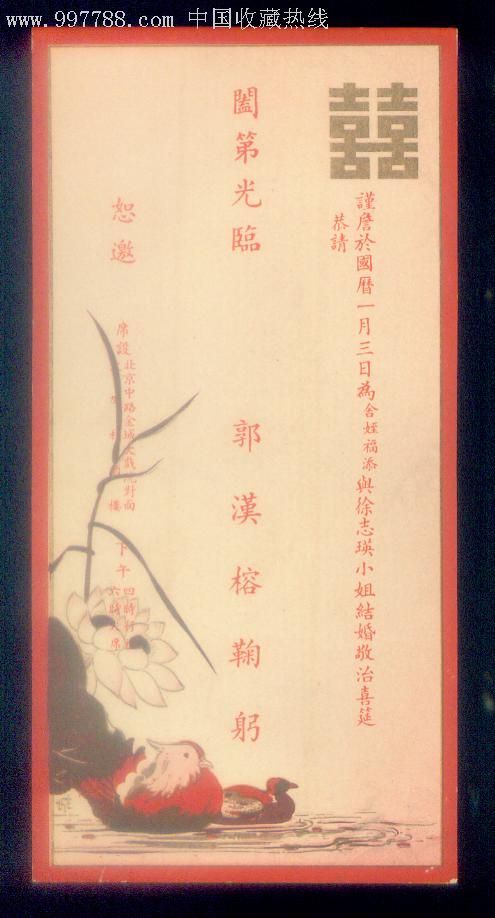 www.997788.com 中国收藏热线
囍
謹詹於國曆一月三日為舍姪福添與徐志瑛小姐結婚敬治喜筵
恭請
闔第光臨
郭漢榕鞠躬
恕邀
席設
北京中路金城大戲院對面
樓
下午
四時
六時入席